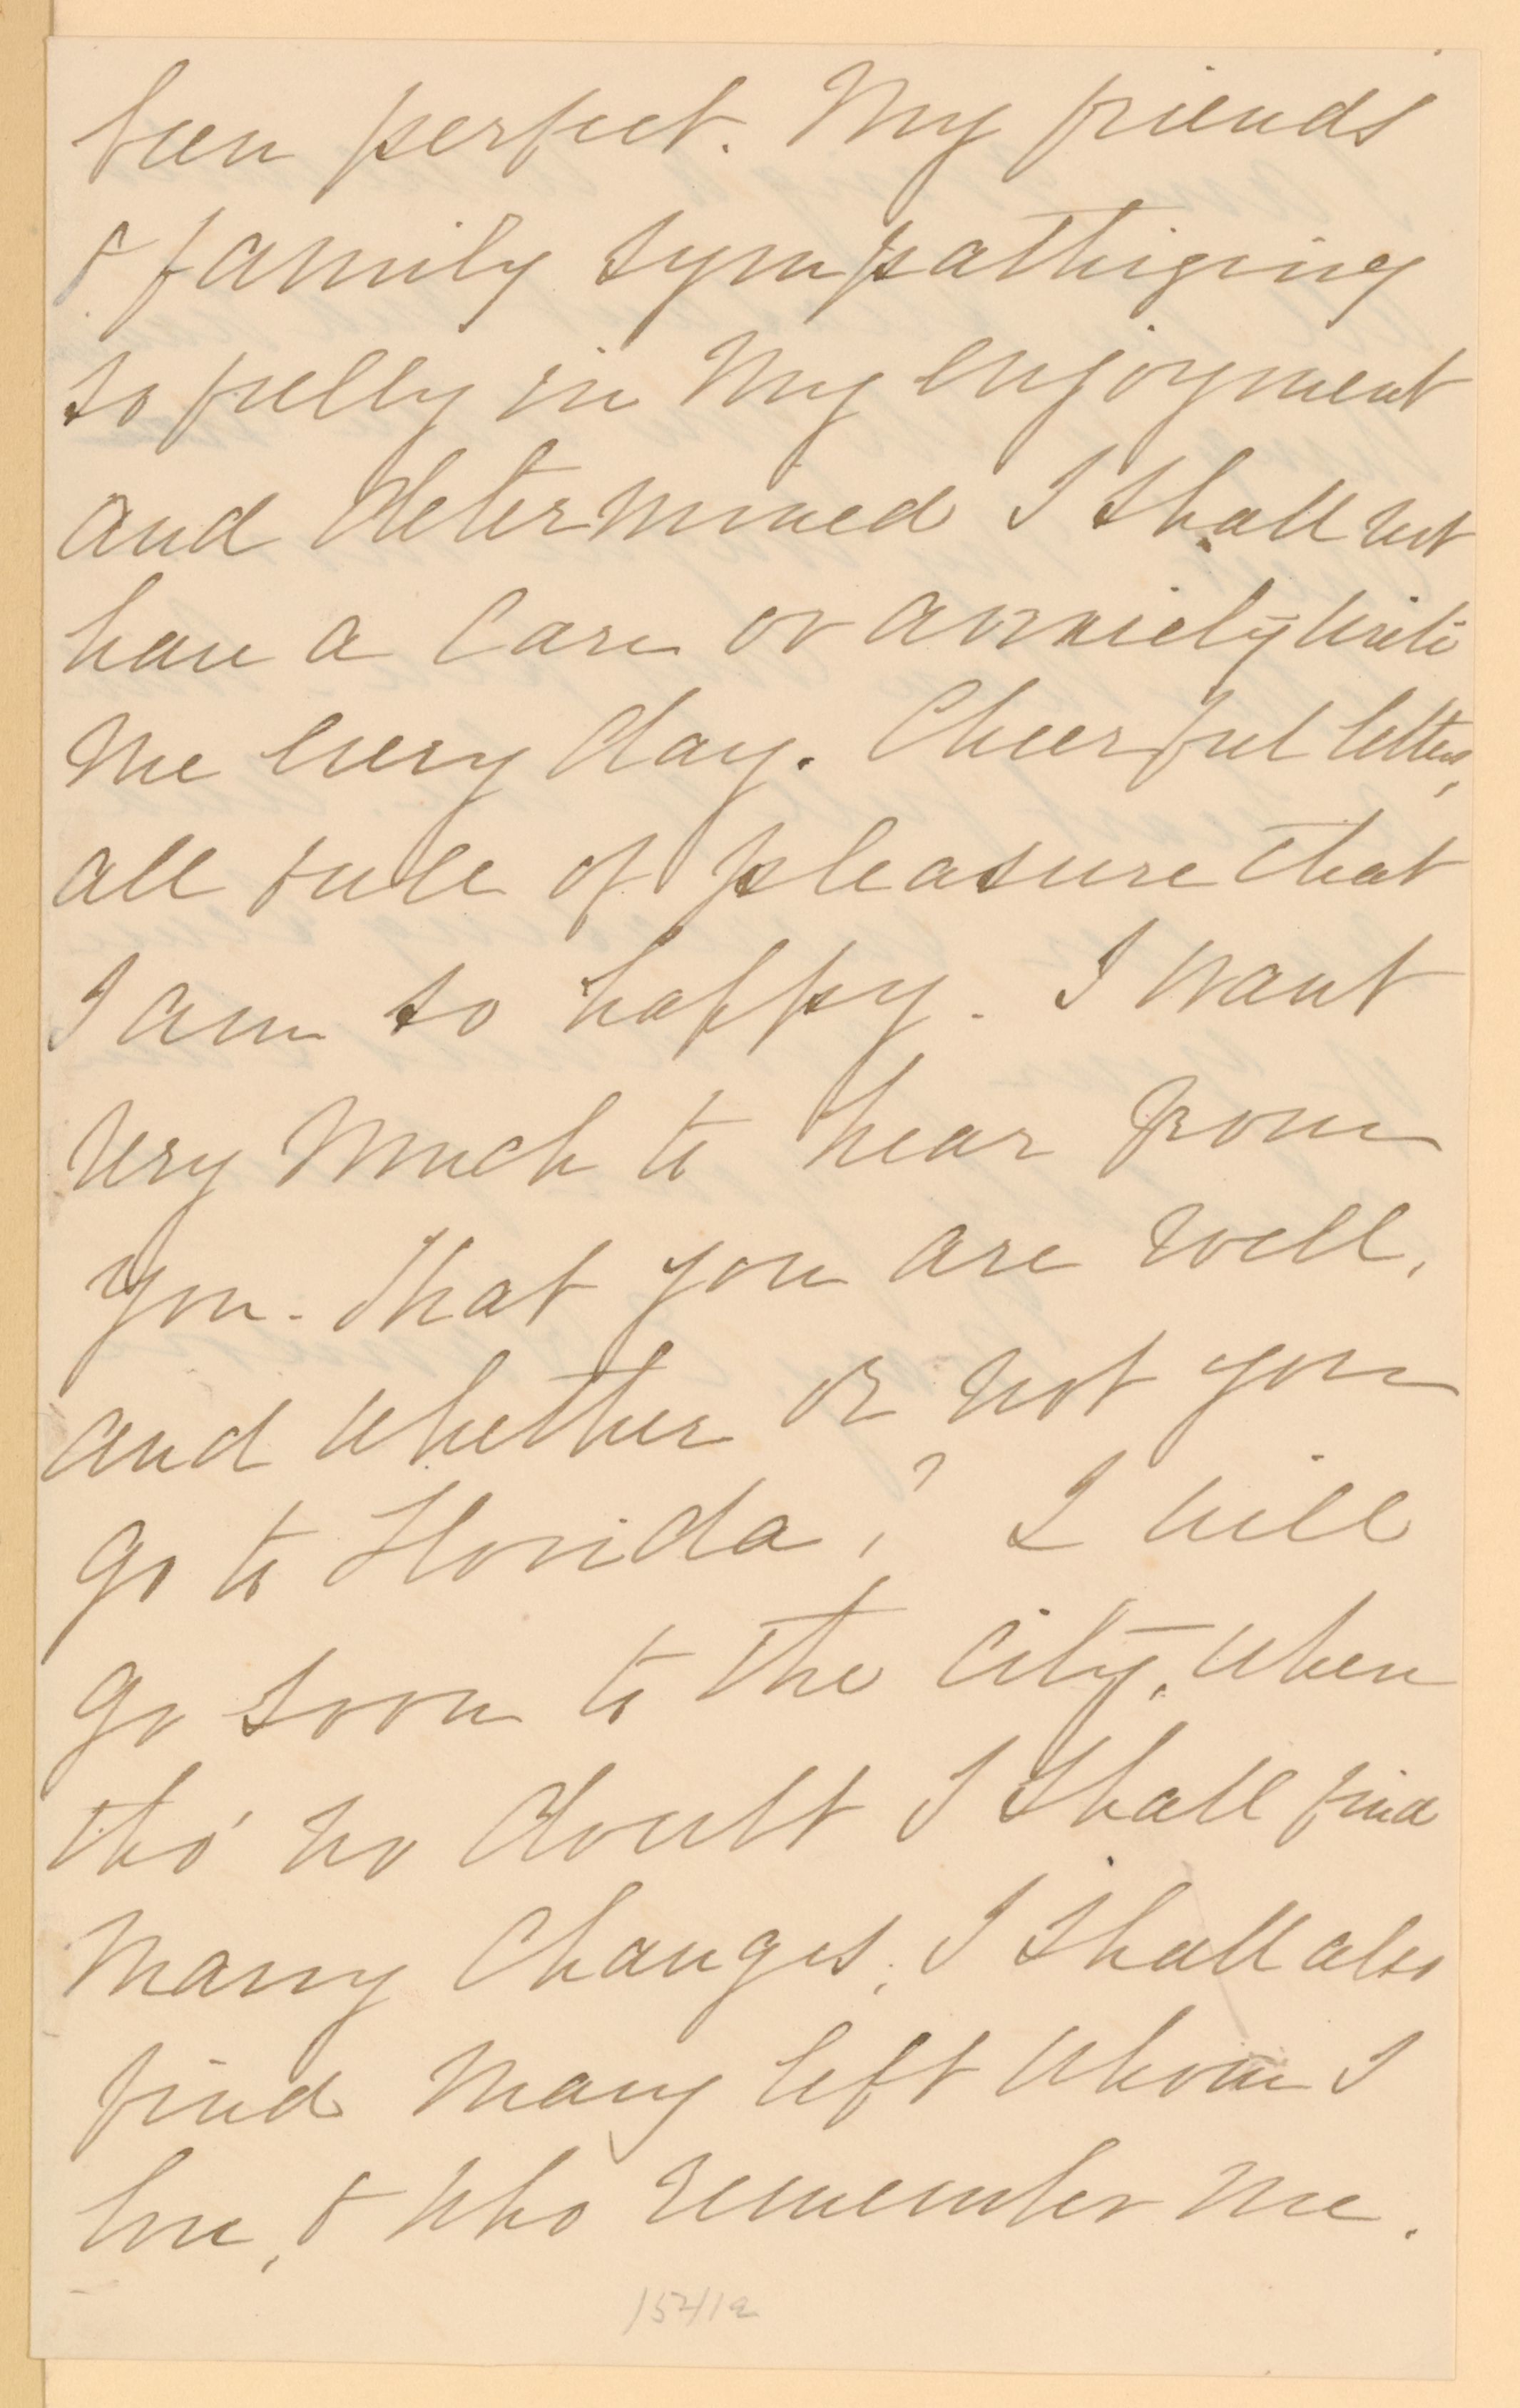 been perfect. My friends
& family sympathizing
so fully in my enjoyment
and determined I shall not
have a care or anxiety, write
me every day. Cheerful letters,
all full of pleasure that
I am so happy. I want
very much to hear from
you. That you are well,
and whether or not you
go to Florida? I will
go soon to the city, when
tho' no doubt I shall find
many changes, I shall also
find many left whom I
love, & who remember me.